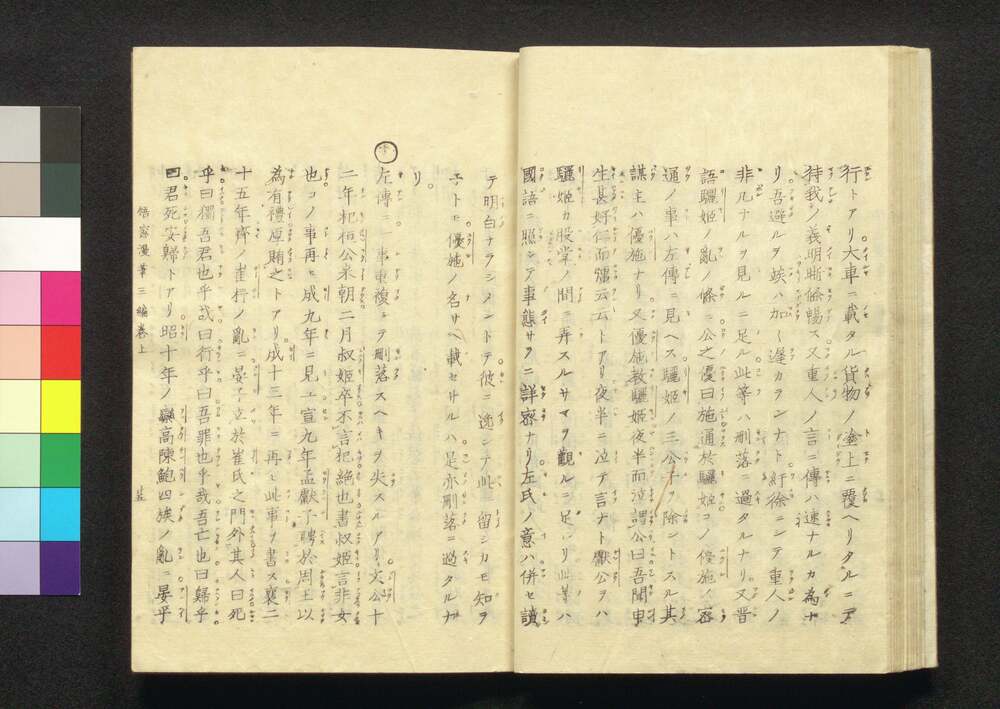 行トアリ大車ニ載タル貨物ノ塗上ニ覆ヘリタルニア
持我ノ義明晰條暢ス又重人ノ言ニ傳ハ速ナルカ為ナ
リ吾避ルヲ竢ハ加ヘ遅カランナト紆徐ニシテ重人ノ
非凡ナルヲ見ルニ足ル此等ハ刪落ニ過タルナリ又晋
語驪姫ノ亂ノ條ニ公之優曰施通於驪姫コノ優施ノ密
通ノ事ハ左傳ニ見ヘス驪姫ノ三公子ヲ除ントスル其
謀主ハ優施ナリ又優施教驪姫夜半而泣謂公曰吾聞申
生甚好仁而彊云云トアリ夜半ニ泣テ言ナト獻公ヲハ
驪姫カ股掌ノ間ニ弄スルサマヲ觀ルニ足レリ此等ハ
國語ニ照シテ事態サラニ詳密ナリ左氏ノ意ハ併セ讀
テ明白ナラシメントテ彼ニ逸シテ此ニ留シカモ知ヲ
子トモ優施ノ名サヘ載セサルハ是亦刪落ニ過タルナ
リ
左傳ニ一事重複シテ刪落スヘキヲ失スルアリ文公十
二年杞桓公来朝二月叔姫卒不言杞絶也書叔姫言非女
也コノ事再ヒ成九年ニ見ユ宣九年孟獻子聘於周王以
為有禮厚賄之トアリ成十三年ニ再ヒ此事ヲ書ス襄二
十五年齊ノ崔杼ノ亂ニ晏子立於崔氏之門外其人曰死
乎曰獨吾君也乎哉曰行乎曰吾罪也乎哉吾亡也曰歸乎
曰君死安歸トアリ昭十年ノ欒高陳鮑四族ノ亂ニ晏乎
漫筆三編巻上